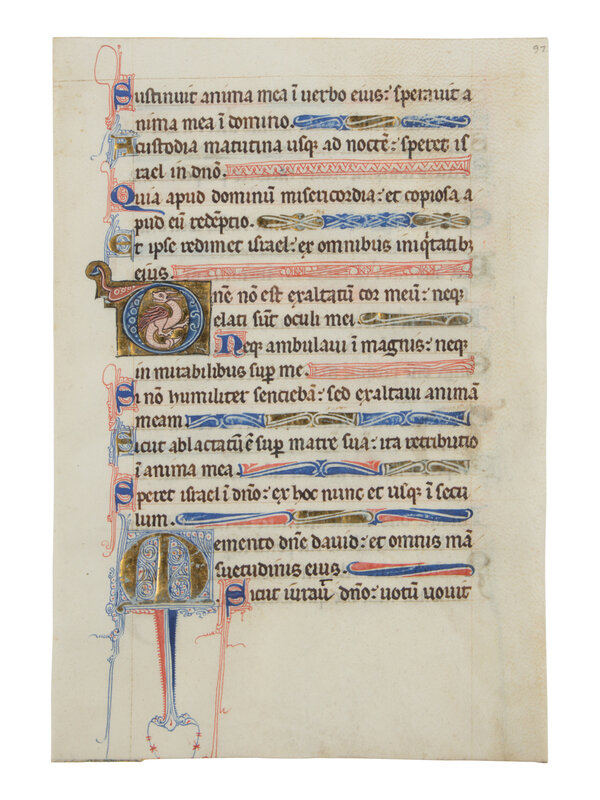 97
Sustinuit anima mea ī uerbo eius: sperauit a
nima mea ī domino.
A custodia matutina usqȝ ad noctē: speret is
rael in dn̄o.
Quia apud dominū misericordia: et copiosa a
pud eū redēptio.
Et ipse redimet israel: ex omnibus iniq̄tatibȝ
eius.
Dn̄e nō est exaltatū cor meū: neqȝ
elati sūt oculi mei
Neqȝ ambulaui ī magnis: neqȝ
in mirabilibus sup̄ me.
Si nō humiliter sentiebā: sed exaltaui animā
meam
Sicut ablactatū ē sup̄ matre sua: ita retributio
ī anima mea.
Speret israel ī dn̄o: ex hoc nunc et usqȝ ī secu
lum.
Memento dn̄e dauid: et omnis mā
suetudinis eius.
Sicut iurauͥt dn̄o: uotū uouit